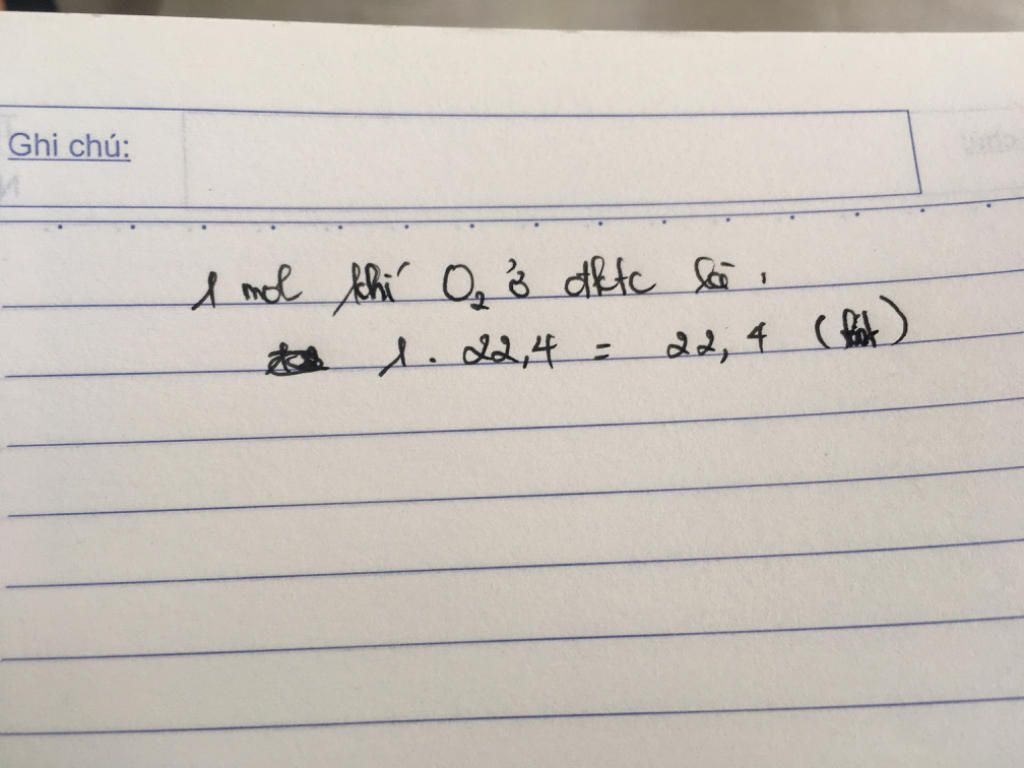 Ghi chú:
1 mol khí O₂ ở đktc là:
1 . 22,4 = 22,4 (lít)